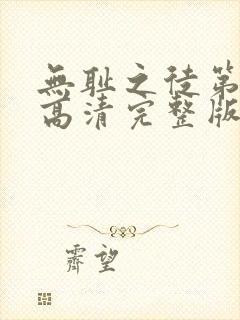 無耻之徒第
高清完整版
霽望